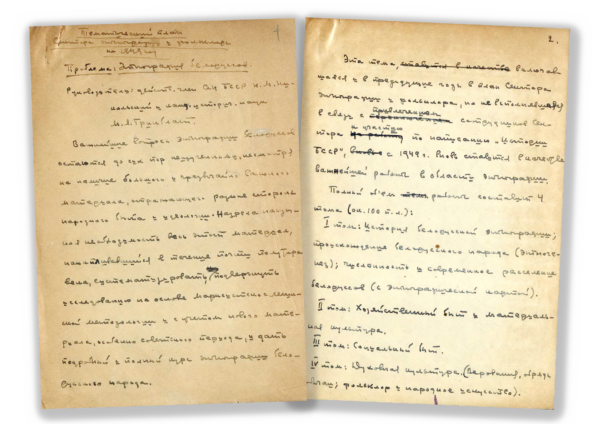 Тематический план
Сектора этнографии и фольклора
на 1949 год
Проблема: Этнография белорусов.
Руководители: действ. член АН БССР Н. М. Ни-
кольский и канд. историч. наук
М. Я. Гринблат.
Важнейшие вопросы этнографии белорусов
остаются до сих пор неизученными, несмотря
на наличие большого и чрезвычайно ценного
материала, отражающего разные стороны
народного быта и идеологии. Назрела насущ-
ная необходимость весь этот материал,
накапливавшийся в течение почти полутора
века, систематизировать, подвергнуть
исследованию на основе марксистско-ленин-
ской методологии и с учетом нового мате-
риала, особенно советского периода, и дать
подробный и полный курс этнографии бело-
русского народа.
2.
Эта тема, ставится в качестве включав-
шаяся и в предыдущие годы в план Сектора
этнографии и фольклора, но не выполнявшаяся
в связи с привлечением сотрудников Сек-
тора к участию по написанию „Истории
БССР", с 1949 г. вновь ставится в качестве
важнейшей работы в области этнографии.
Полный объем работы составит 4
тома (ок. 100 п. л.):
I том: История белорусской этнографии;
происхождение белорусского народа (Этноге-
нез); численность и современное расселение
белорусов (с этнографической картой).
II том: Хозяйственный быт и материаль-
ная культура.
III том: Социальный быт.
IV том: Духовная культура (Верования, обряды
фольклор и народное искусство).